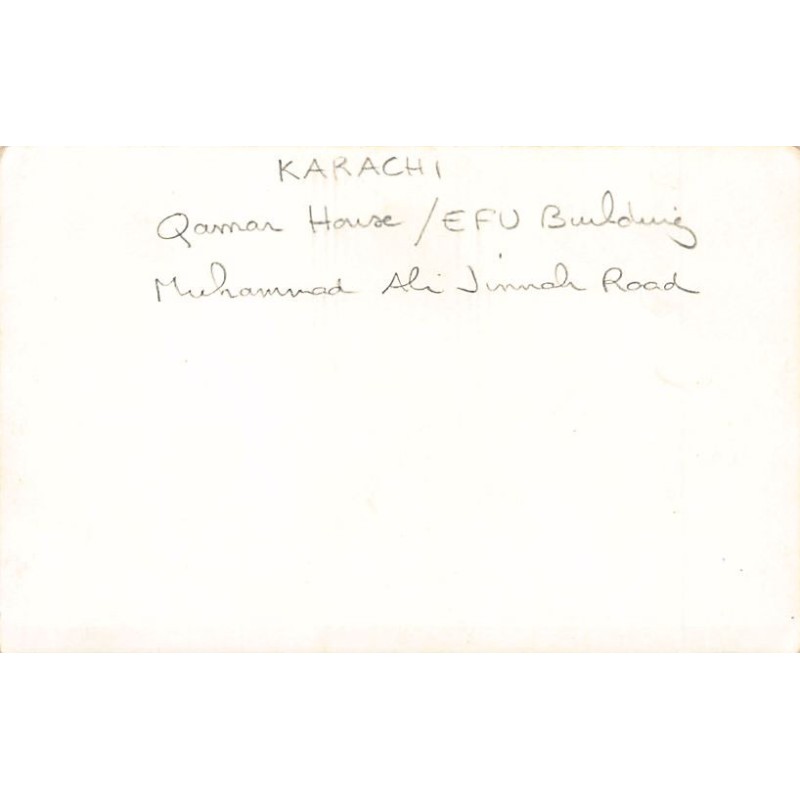 KARACHI
Qamar House / EFU Building
Muhammad Ali Jinnah Road